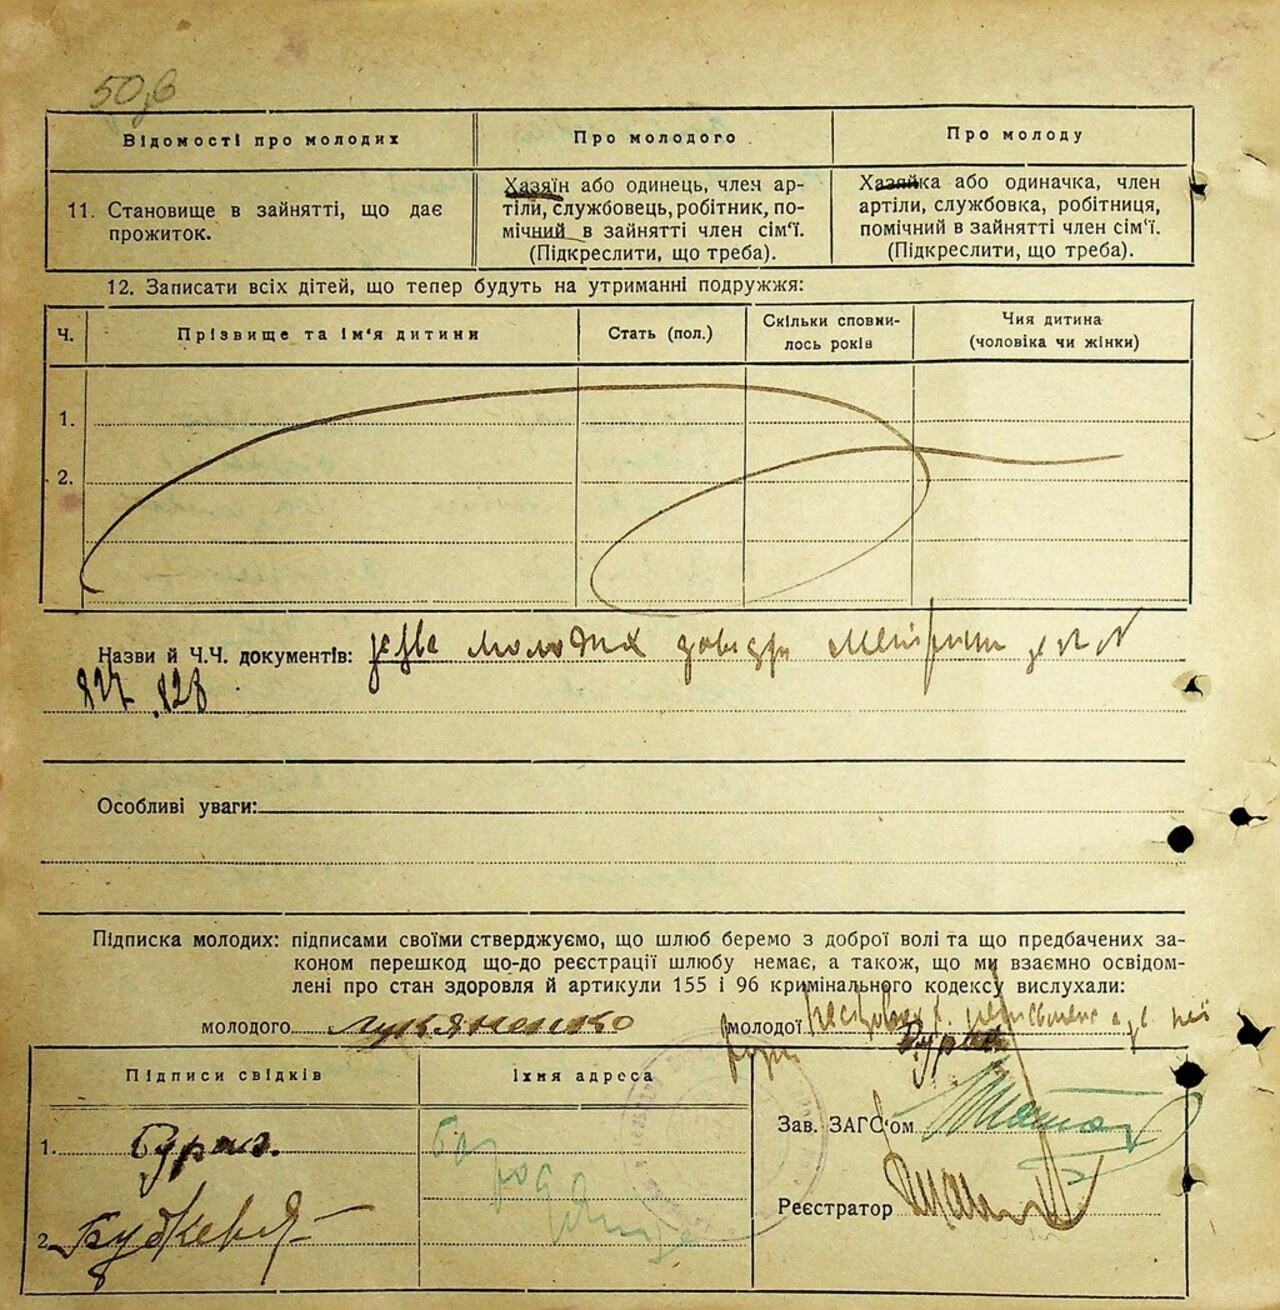 50,6
Відомості про молодих
Про молодого
Про молоду
11. Становище в зайнятті, що дає
прожиток.
Хазяїн або одинець, член ар-
тіли, службовець, робітник, по-
мічний в зайнятті член сім'ї.
(Підкреслити, що треба).
Хазяйка або одиначка, член
артіли, службовка, робітниця,
помічний в зайнятті член сім'ї.
(Підкреслити, що треба).
12. Записати всіх дітей, що тепер будуть на утриманні подружжя:
Ч.
Прізвище та ім'я дитини
Стать (пол.)
Скільки сповни-
лось років
Чия дитина
(чоловіка чи жінки)
1.
2.
Назви й Ч.Ч. документів: молодих
827 828
Особливі уваги:
Підписка молодих: підписами своїми стверджуємо, що шлюб беремо з доброї волі та що предбачених за-
коном перешкод що-до реєстрації шлюбу немає, а також, що ми взаємно освідом-
лені про стан здоровля й артикули 155 і 96 кримінального кодексу вислухали:
молодого Лукяненко молодої
Бураз
Підписи свідків
їхня адреса
1. Бураз.
2.
Зав. ЗАГС'ом
Реєстратор